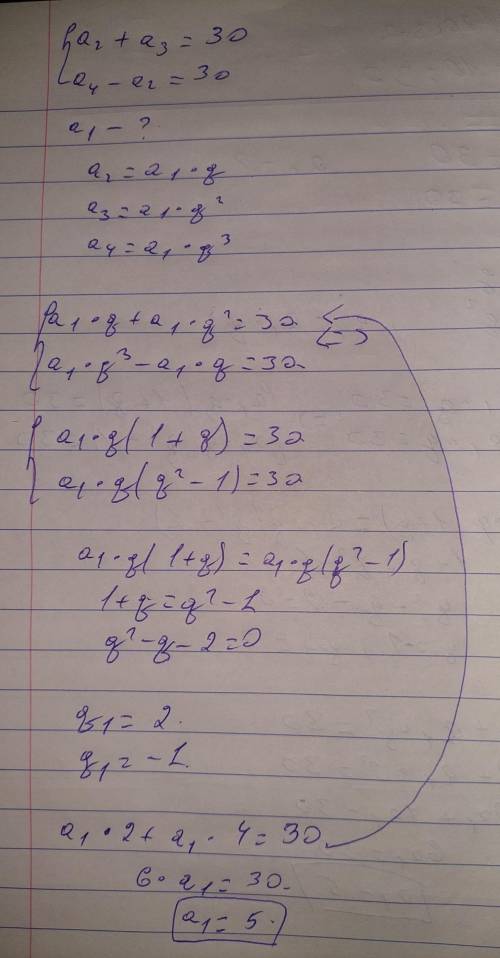 {a₂ + a₃ = 30
a₄ - a₂ = 30
a₁ - ?
a₂ = a₁ · q
a₃ = a₁ · q²
a₄ = a₁ · q³
{a₁ · q + a₁ · q² = 30 <=>
a₁ · q³ - a₁ · q = 30
{a₁ · q(1 + q) = 30
a₁ · q(q² - 1) = 30
a₁ · q(1 + q) = a₁ · q(q² - 1)
1 + q = q² - 1
q² - q - 2 = 0
q₁ = 2.
q₁ = -1.
a₁ · 2 + a₁ · 4 = 30.
6 · a₁ = 30.
a₁ = 5.